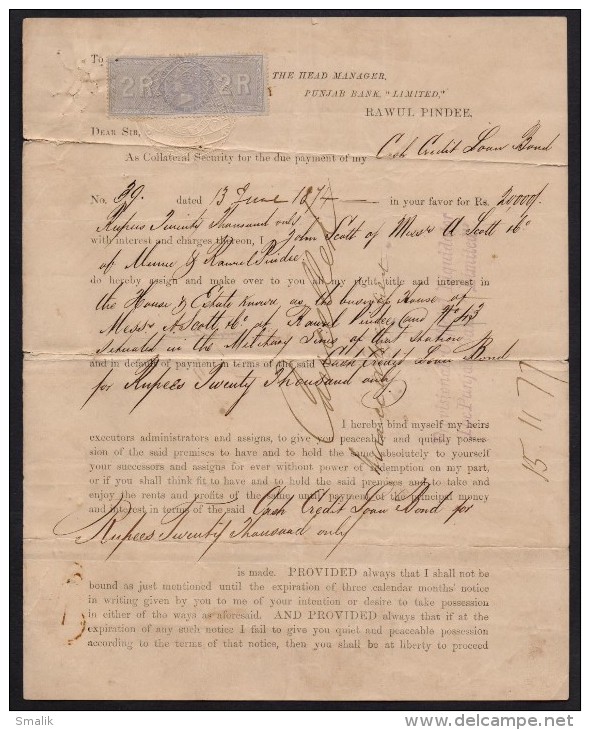 To
2 R 2 R
THE HEAD MANAGER,
PUNJAB BANK, "LIMITED,"
RAWUL PINDEE.
DEAR SIR,
As Collateral Security for the due payment of my Cash Credit Loan Bond
No. 39. dated 13 June 1874 in your favor for Rs. 20000/-
Rupees Twenty Thousand only
with interest and charges thereon, I John Scott of Messrs A Scott & Co
of Murree & Rawul Pindee
do hereby assign and make over to you all my right title and interest in
the House & Estate known as the business House of
Messrs A Scott & Co. of Rawul Pindee and No
situated in the Military Lines of that Station
and in default of payment in terms of the said Cash Credit Loan Bond
for Rupees Twenty Thousand only
I hereby bind myself my heirs
executors administrators and assigns, to give you peaceable and quietly posses-
sion of the said premises to have and to hold the same absolutely to yourself
your successors and assigns for ever without power of redemption on my part,
or if you shall think fit to have and to hold the said premises and to take and
enjoy the rents and profits of the same until payment of the principal money
and interest in terms of the said Cash Credit Loan Bond for
Rupees Twenty Thousand only
is made. PROVIDED always that I shall not be
bound as just mentioned until the expiration of three calendar months' notice
in writing given by you to me of your intention or desire to take possession
in either of the ways as aforesaid. AND PROVIDED always that if at the
expiration of any such notice I fail to give you quiet and peaceable possession
according to the terms of that notice, then you shall be at liberty to proceed
Cancelled
15. 11 77
Smalik
delcampe.net